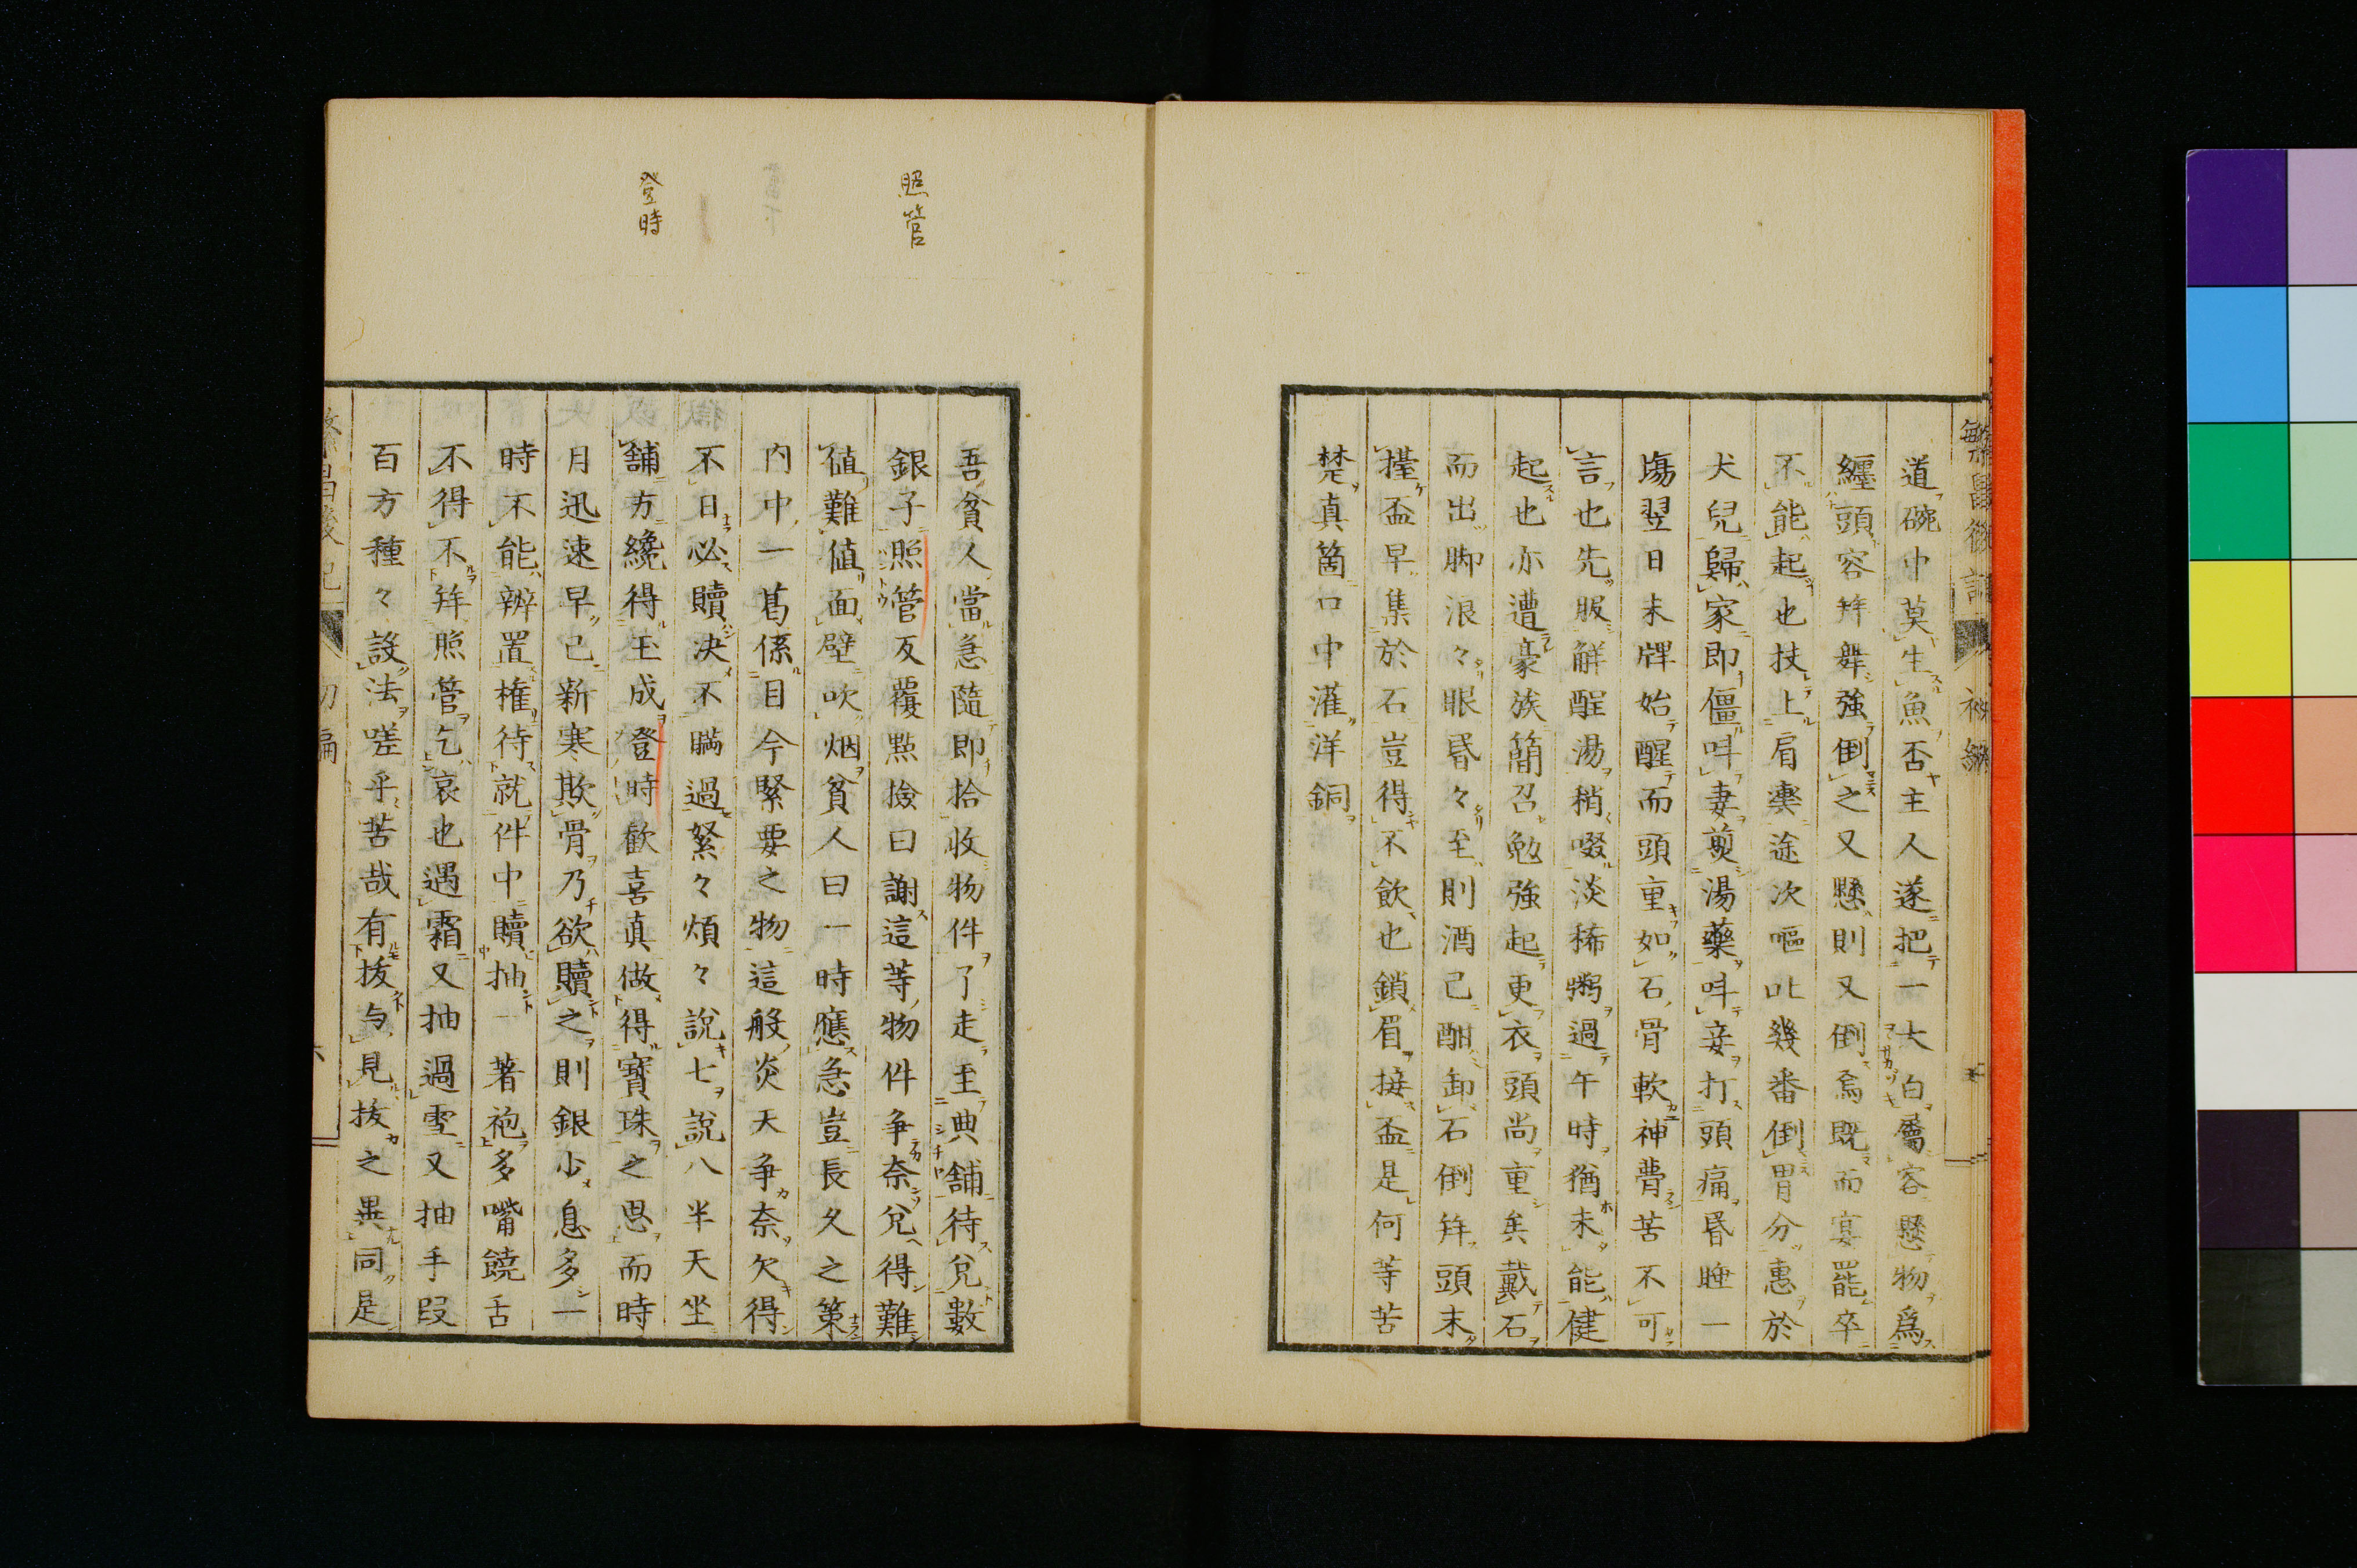 繁昌後記
初編
道碗中莫生魚否主人遂把一大白屬容懸物爲
纏頭容拜舞強倒之又懸則又倒焉既而宴罷卒
不能起也扶上肩輿途次嘔吐幾番倒胃分惠於
犬兒歸家即僵呌妻煎湯藥呌妾打頭痛昏睡一
塲翌日未牌始醒而頭重如石骨軟神瞢苦不可
言也先服解酲湯稍啜淡稀粥過午時猶未能健
起也亦遭豪族簡召勉強起更衣頭尚重矣戴石
而出脚浪々眼昏々至則酒已酣卸石倒拜頭未
擡盃早集於石豈得不飲也鎖眉接盃是何等苦
楚真箇口中灌洋銅
照管
登時
吾貧人當急隨即拾收物件了走至典舖待兌數
銀子照管反覆點撿曰謝這等物件爭奈兌得難
値難値面壁吹烟貧人曰一時應急豈長久之策
内中一葛係目今緊要之物這般炎天爭奈欠得
不日必贖决不瞞過絮々煩々說七說八半天坐
舖方纔得玉成登時歡喜真做得寳珠之思而時
月迅速早已新寒欺骨乃欲贖之則銀少息多一
時不能辨置権待就件中贖抽一著袍多嘴饒舌
不得不拜照管乞哀也遇霜又抽過雪又抽手段
百方種々設法嗟乎苦哉有拔与見拔之異同是
繁昌後記
初編